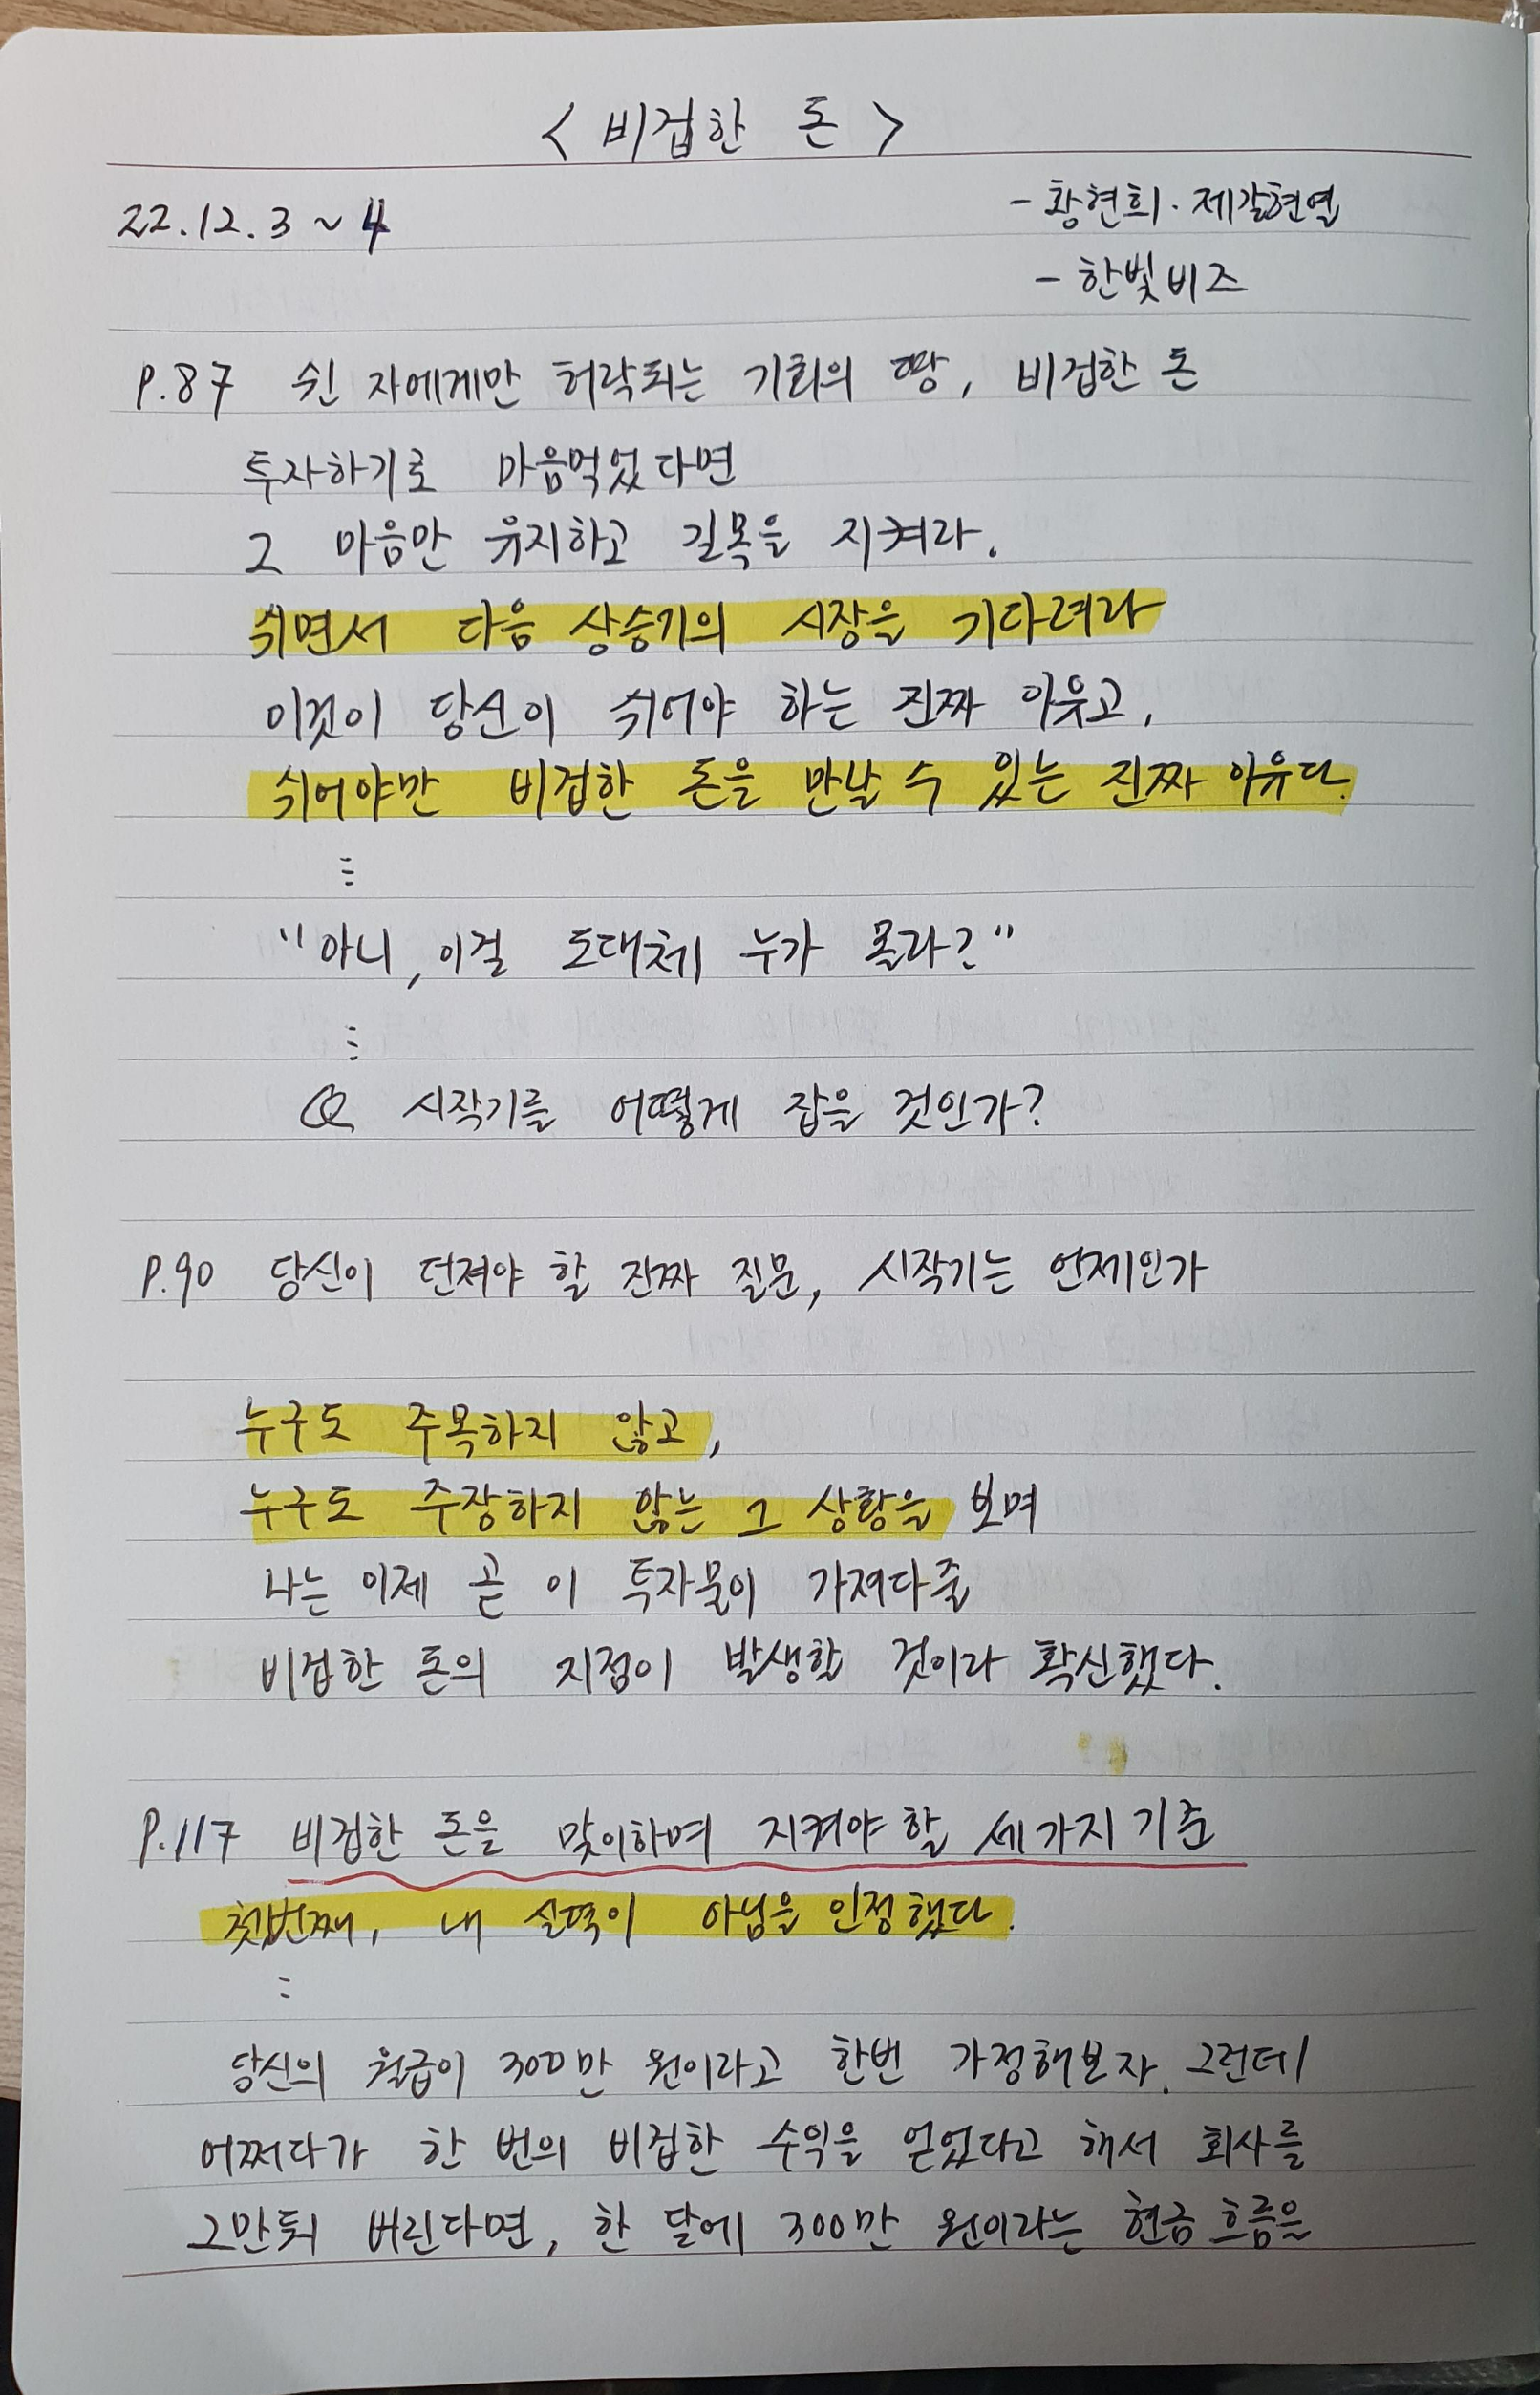 < 비겁한 돈 >
22.12.3 ~ 4
- 황현희 · 제갈현열
- 한빛비즈
P.87 쉰 자에게만 허락되는 기회의 땅, 비겁한 돈
투자하기로 마음먹었다면
그 마음만 유지하고 길목을 지켜라.
쉬면서 다음 상승기의 시장을 기다려라
이것이 당신이 쉬어야 하는 진짜 이유고,
쉬어야만 비겁한 돈을 만날 수 있는 진짜 이유다.
⋮
"아니, 이걸 도대체 누가 몰라?"
⋮
Q 시작기를 어떻게 잡을 것인가?
P.90 당신이 던져야 할 진짜 질문, 시작기는 언제인가
누구도 주목하지 않고,
누구도 주장하지 않는 그 상황을 보며
나는 이제 곧 이 투자물이 가져다줄
비겁한 돈의 지점이 발생할 것이라 확신했다.
P.117 비겁한 돈을 맞이하며 지켜야 할 세가지 기준
첫번째, 내 실력이 아님을 인정했다.
:
당신의 월급이 300만 원이라고 한번 가정해보자. 그런데
어쩌다가 한 번의 비겁한 수익을 얻었다고 해서 회사를
그만둬 버린다면, 한 달에 300만 원이라는 현금흐름을